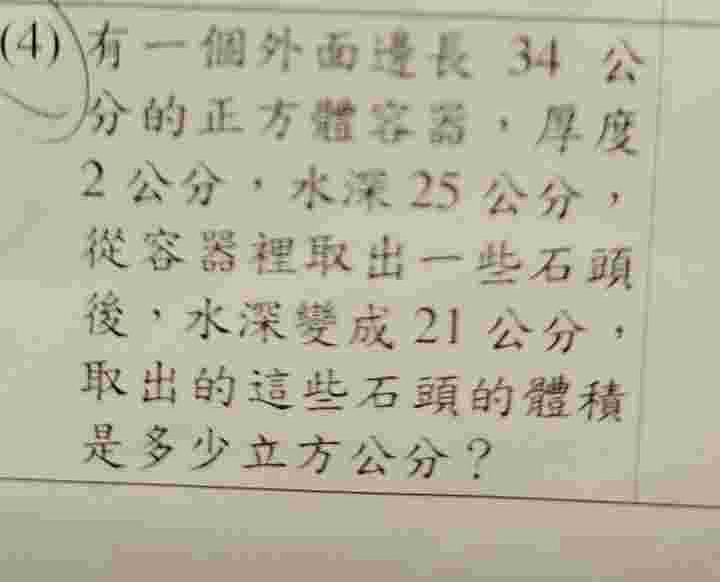 (4) 有一個外面邊長 34 公
分的正方體容器，厚度
2 公分，水深 25 公分，
從容器裡取出一些石頭
後，水深變成 21 公分，
取出的這些石頭的體積
是多少立方公分？